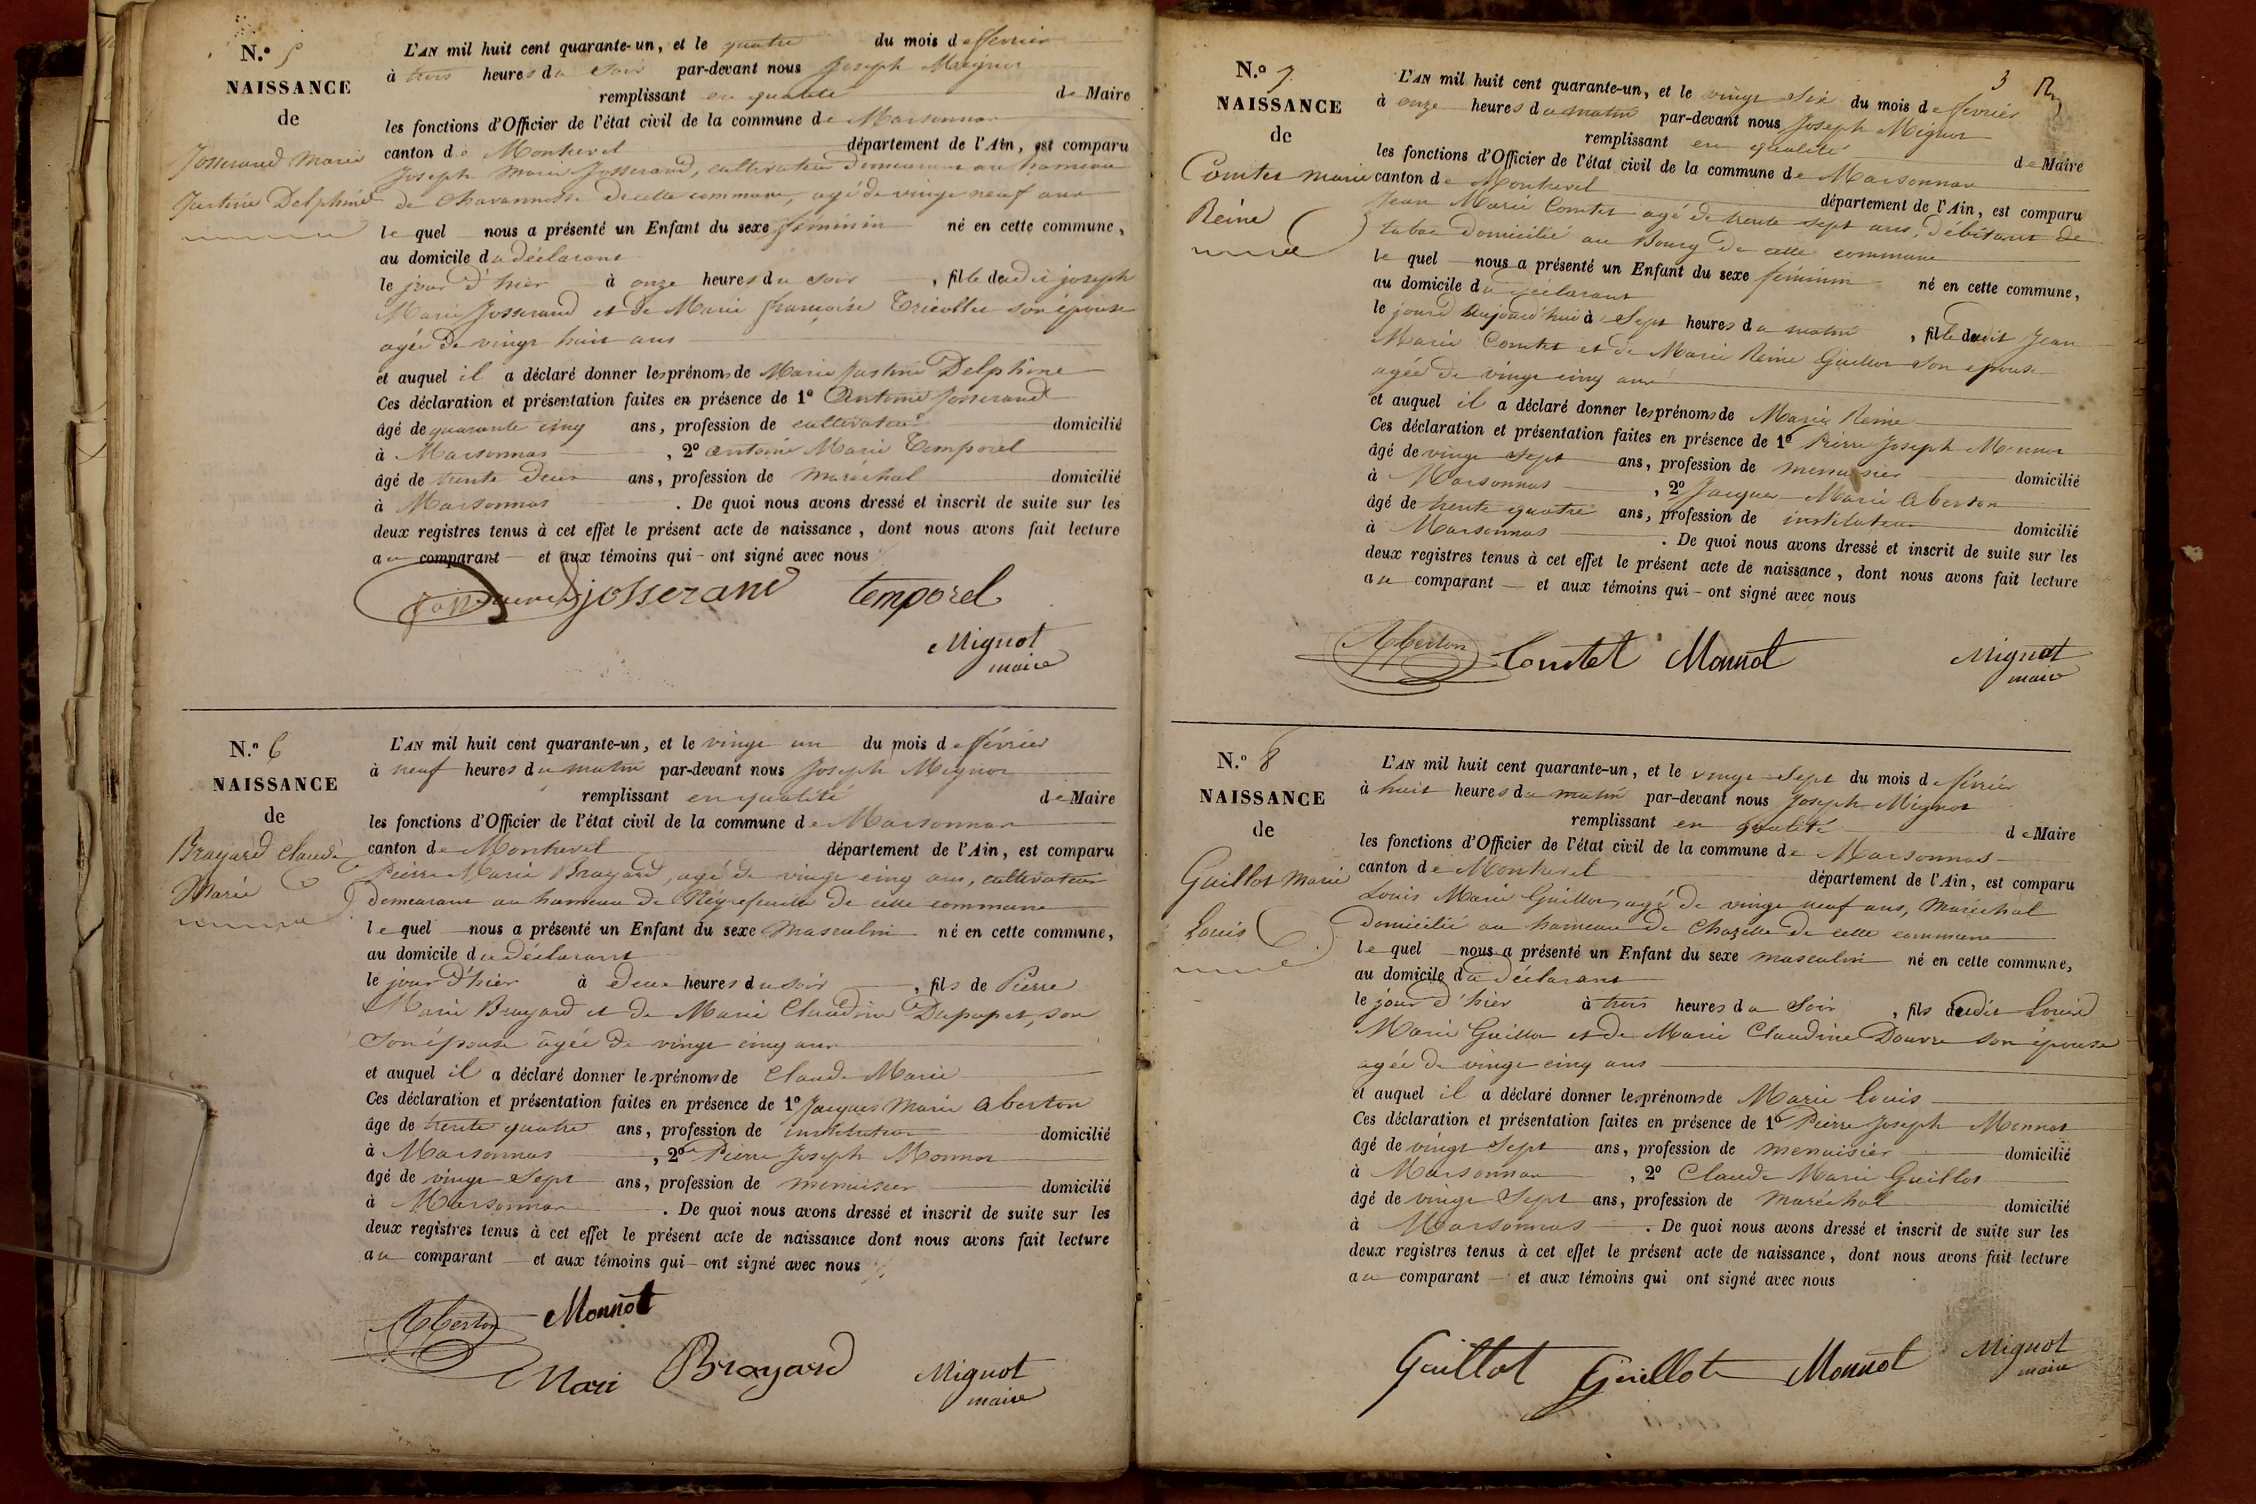 N.º 5
NAISSANCE
de
Josserand Marie
Justine Delphine
L'AN mil huit cent quarante-un, et le quatre du mois de février
à trois heures du soir par-devant nous Joseph Mignot
remplissant en qualité de Maire
les fonctions d'Officier de l'état civil de la commune de Marsonnas
canton de Montrevel département de l'Ain, est comparu
Joseph Marie Josserand, cultivateur demeurant au hameau
de de cette commune, agé de vingt neuf ans
le quel nous a présenté un Enfant du sexe féminin né en cette commune,
au domicile du déclarant
le jour d'hier à onze heures du soir, fille dudit joseph
Marie Josserand et de Marie françoise son épouse
agée de vingt huit ans
et auquel il a déclaré donner les prénoms de Marie Justine Delphine
Ces déclaration et présentation faites en présence de 1º Antoine Josserand
âgé de quarante cinq ans, profession de cultivateur domicilié
à Marsonnas, 2º antoine Marie Temporel
âgé de trente deux ans, profession de maréchal domicilié
à Marsonnas. De quoi nous avons dressé et inscrit de suite sur les
deux registres tenus à cet effet le présent acte de naissance, dont nous avons fait lecture
au comparant et aux témoins qui ont signé avec nous
josserand temporel
Mignot
maire
N.º 6
NAISSANCE
de
Brayard Claude
Marie
L'AN mil huit cent quarante-un, et le vingt un du mois de février
à neuf heures du matin par-devant nous Joseph Mignot
remplissant en qualité de Maire
les fonctions d'Officier de l'état civil de la commune de Marsonnas
canton de Montrevel département de l'Ain, est comparu
Pierre Marie Brayard, agé de vingt cinq ans, cultivateur
demeurant au hameau de de cette commune
le quel nous a présenté un Enfant du sexe masculin né en cette commune,
au domicile du déclarant
le jour d'hier à deux heures du soir, fils de Pierre
Marie Brayard et de Marie Claudine Dupupet, son
son épouse âgée de vingt cinq ans
et auquel il a déclaré donner les prénoms de Claude Marie
Ces déclaration et présentation faites en présence de 1º Jacques Marie Aberton
âge de trente quatre ans, profession de instituteur domicilié
à Marsonnas, 2º Pierre Joseph Monnot
âgé de vingt sept ans, profession de menuisier domicilié
à Marsonnas. De quoi nous avons dressé et inscrit de suite sur les
deux registres tenus à cet effet le présent acte de naissance dont nous avons fait lecture
au comparant et aux témoins qui ont signé avec nous
Aberton Monnot
Mari Brayard Mignot
maire
3
N.º 7
NAISSANCE
de
Comtet marie
Reine
L'AN mil huit cent quarante-un, et le vingt six du mois de février
à onze heures du matin par-devant nous Joseph Mignot
remplissant en qualité de Maire
les fonctions d'Officier de l'état civil de la commune de Marsonnas
canton de Montrevel département de l'Ain, est comparu
Jean Marie Comtet agé de trente sept ans, débitant de
tabac domicilié au Bourg de cette commune
le quel nous a présenté un Enfant du sexe féminin né en cette commune,
au domicile du déclarant
le jourd aujourd'hui à Sept heures du matin, fille dudit Jean
Marie Comtet et de Marie Reine Guillot son épouse
agée de vingt cinq ans
et auquel il a déclaré donner les prénoms de Marie Reine
Ces déclaration et présentation faites en présence de 1º Pierre Joseph Monnot
âgé de vingt sept ans, profession de menuisier domicilié
à Marsonnas, 2º Jacques Marie Aberton
âgé de trente quatre ans, profession de instituteur domicilié
à Marsonnas. De quoi nous avons dressé et inscrit de suite sur les
deux registres tenus à cet effet le présent acte de naissance, dont nous avons fait lecture
au comparant et aux témoins qui ont signé avec nous
Aberton Comtet Monnot Mignot
maire
N.º 8
NAISSANCE
de
Guillot Marie
Louis
L'AN mil huit cent quarante-un, et le vingt Sept du mois de février
à huit heures du matin par-devant nous Joseph Mignot
remplissant en qualité de Maire
les fonctions d'Officier de l'état civil de la commune de Marsonnas
canton de Montrevel département de l'Ain, est comparu
Louis Marie Guillot, agé de vingt neuf ans, maréchal
domicilié au hameau de Chazelle de cette commune
le quel nous a présenté un Enfant du sexe masculin né en cette commune,
au domicile du déclarant
le jour d'hier à trois heures du Soir, fils dudit Louis
Marie Guillot et de Marie Claudine Douvre son épouse
agée de vingt cinq ans
et auquel il a déclaré donner les prénoms de Marie Louis
Ces déclaration et présentation faites en présence de 1º Pierre Joseph Monnot
âgé de vingt Sept ans, profession de menuisier domicilié
à Marsonnas, 2º Claude Marie Guillot
âgé de vingt Sept ans, profession de maréchal domicilié
à Marsonnas. De quoi nous avons dressé et inscrit de suite sur les
deux registres tenus à cet effet le présent acte de naissance, dont nous avons fait lecture
au comparant et aux témoins qui ont signé avec nous
Guillot Guillot Monnot Mignot
maire